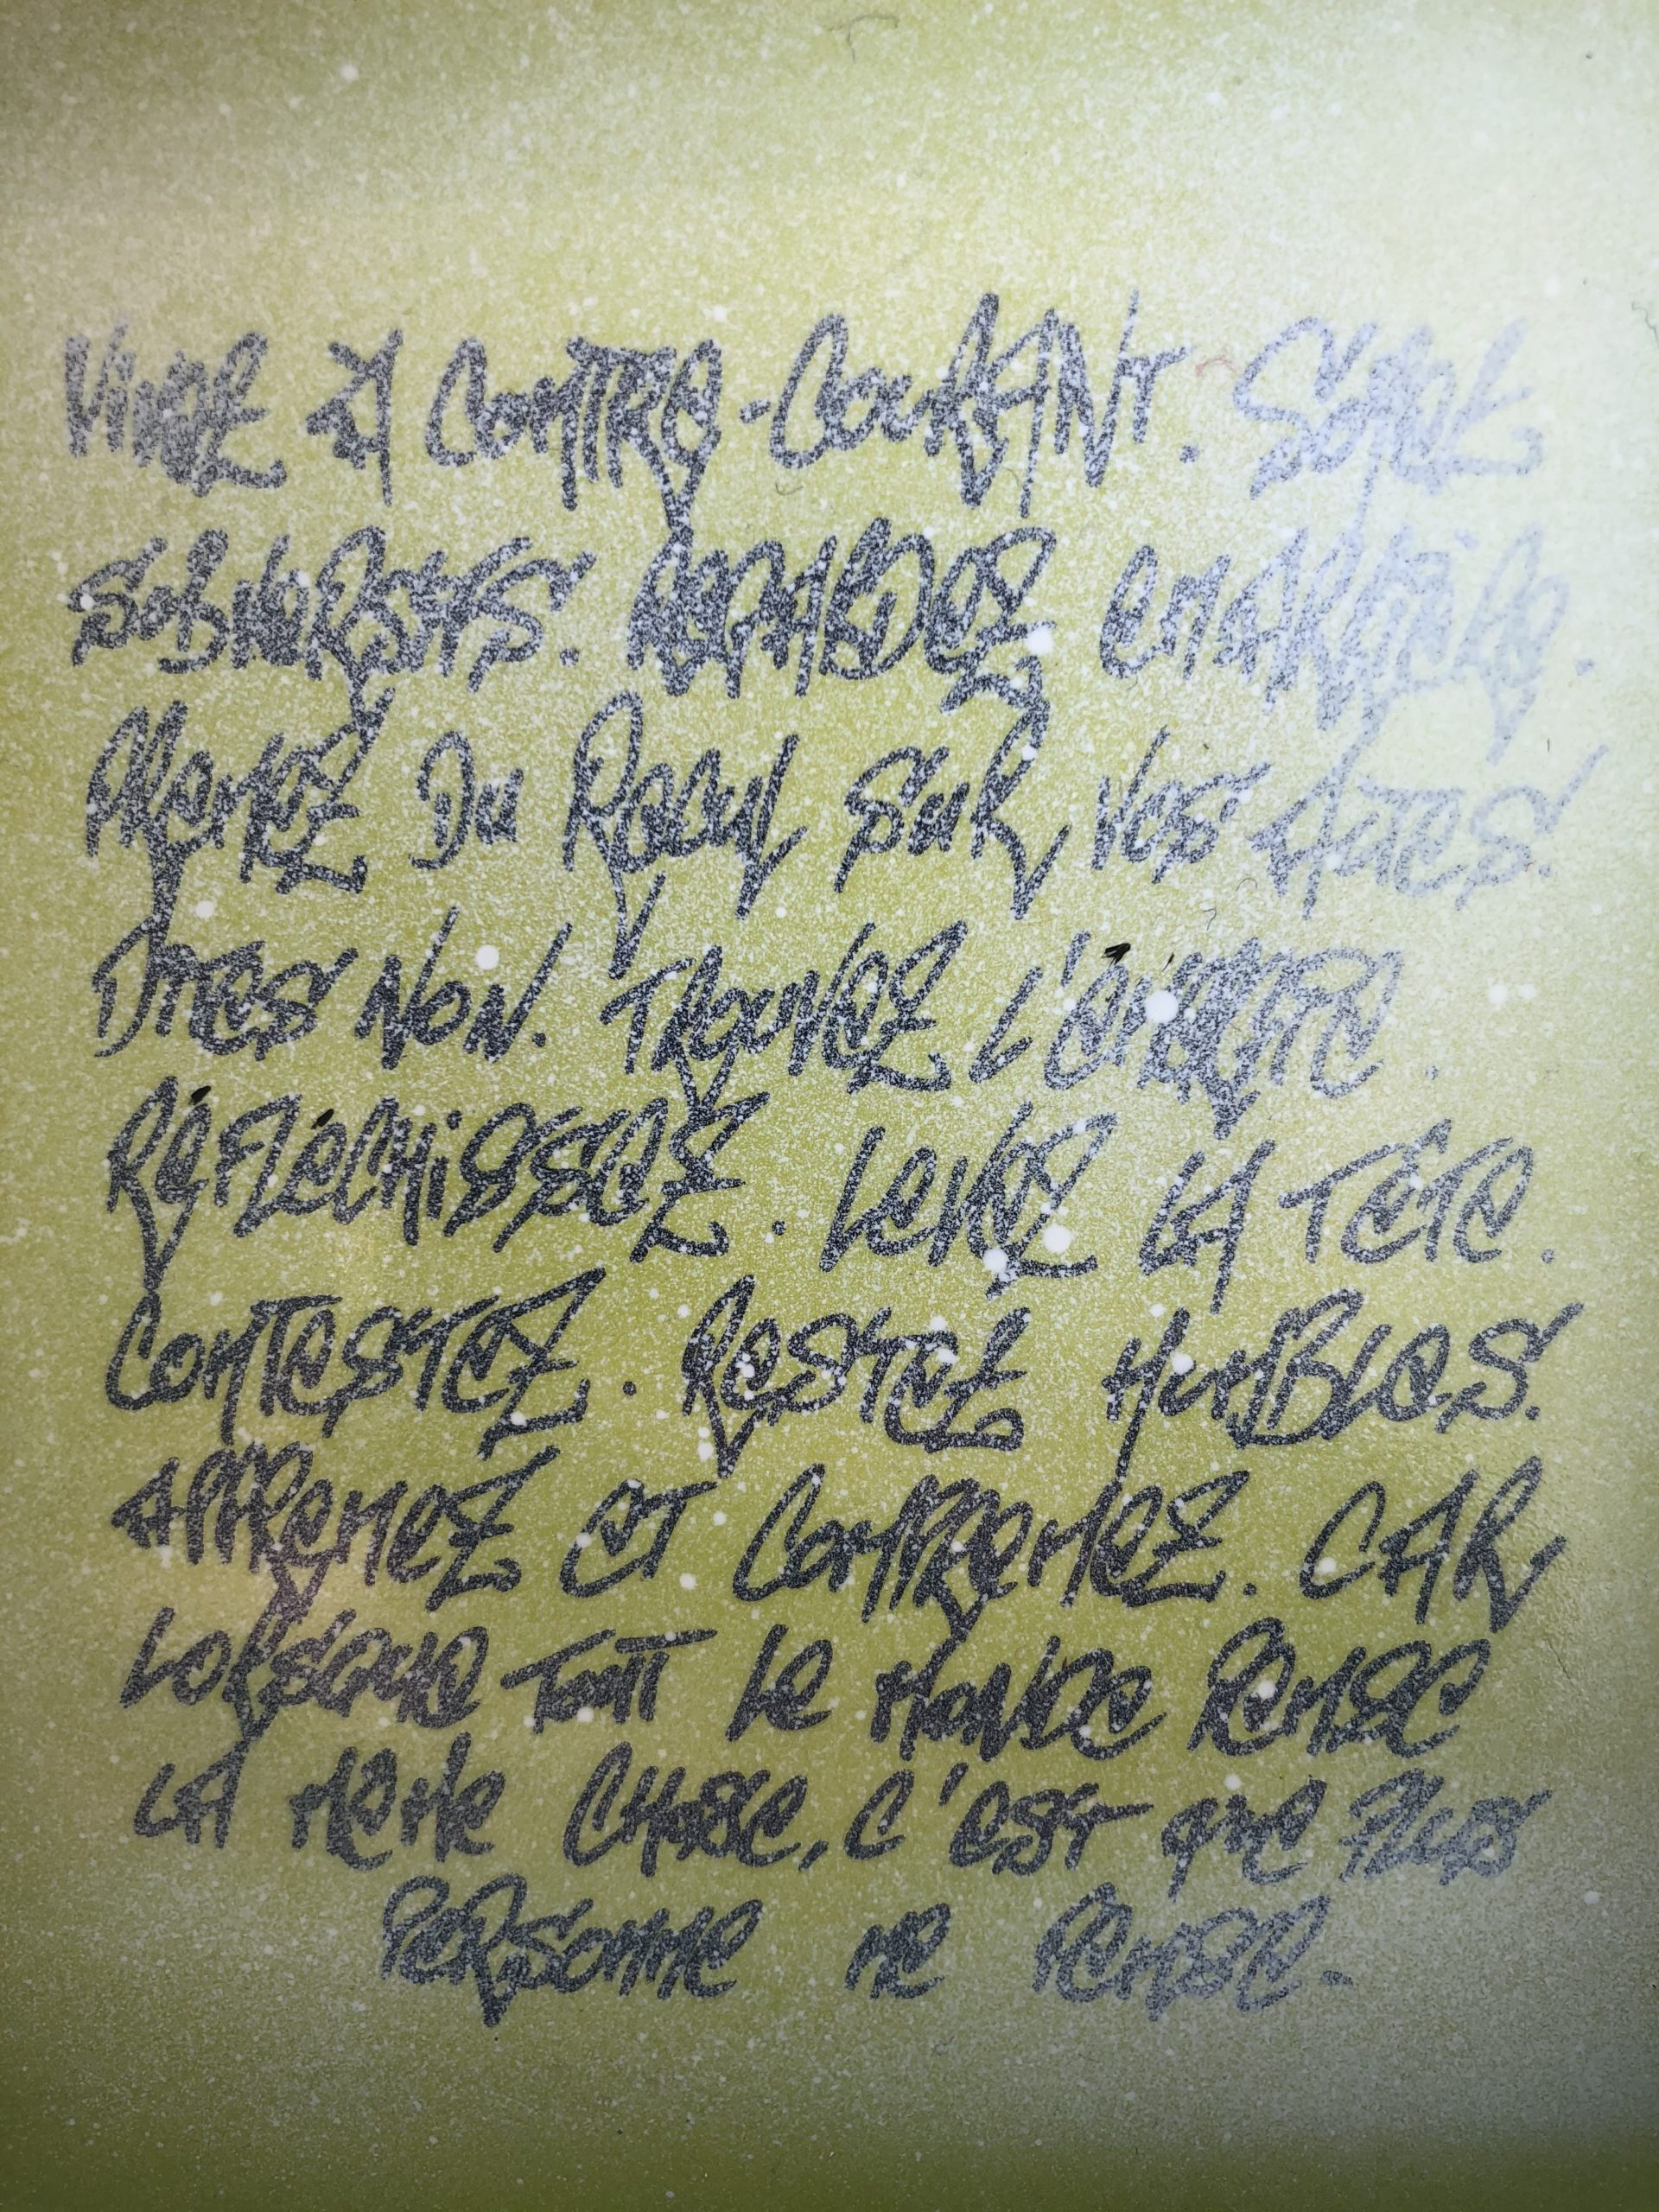 Vivre à contre-courant. Soyez
subversifs. Regardez en arrière.
Prenez du recul sur vos actes.
Dites non. Trouvez l'équilibre.
Réfléchissez. Levez la tête.
Contestez. Restez humbles.
Apprenez et comprenez. Car
lorsque tout le monde pense
la même chose, c'est que plus
personne ne pense.